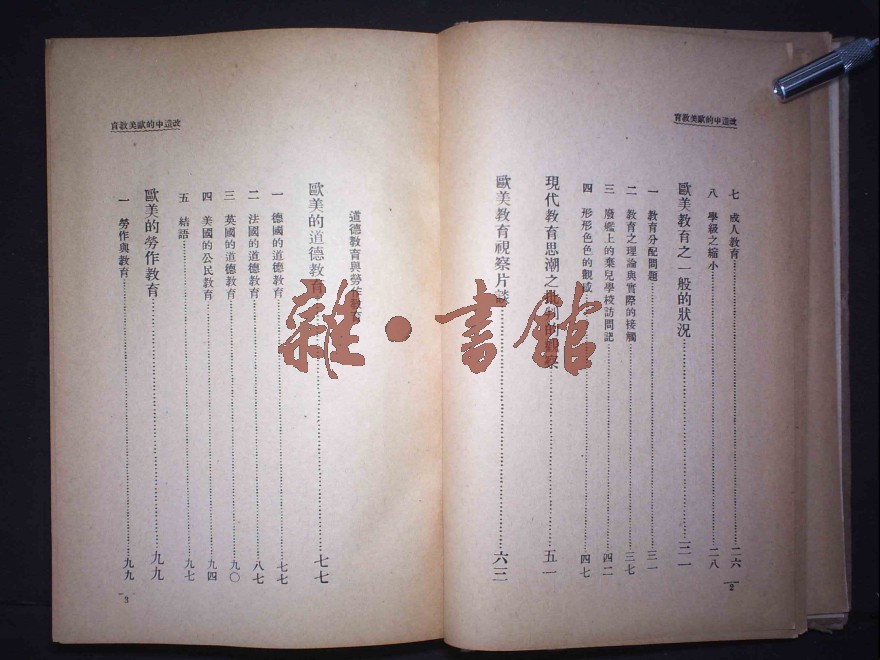 改造中的歐美教育
七 成人教育……二六
八 學級之縮小……二八
歐美教育之一般的狀況……三一
一 教育分配問題……三一
二 教育之理論與實際的接觸……三七
三 廢艦上的棄兒學校訪問記……四二
四 形形色色的觀感……四七
現代教育思潮之批判的觀察……五一
歐美教育視察片談……六三
2
改造中的歐美教育
道德教育與勞作教育
歐美的道德教育……七七
一 德國的道德教育……七七
二 法國的道德教育……八七
三 英國的道德教育……九〇
四 美國的公民教育……九四
五 結語……九七
歐美的勞作教育……九九
一 勞作與教育……九九
3
雜·書館